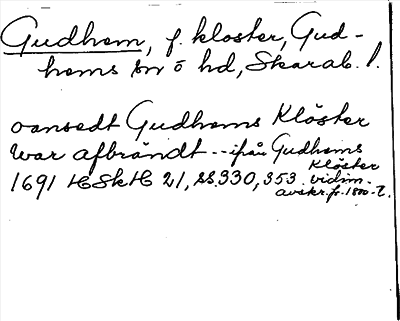 Gudhem, f. kloster, Gud-
hems sn o hd, Skarab. l.
oansedt Gudhems Klöster
war afbrändt -- ifrån Gudhems
Klöster
1691 HSkH 21, ss 330, 353. vidim.
avskr. fr. 1800-t.